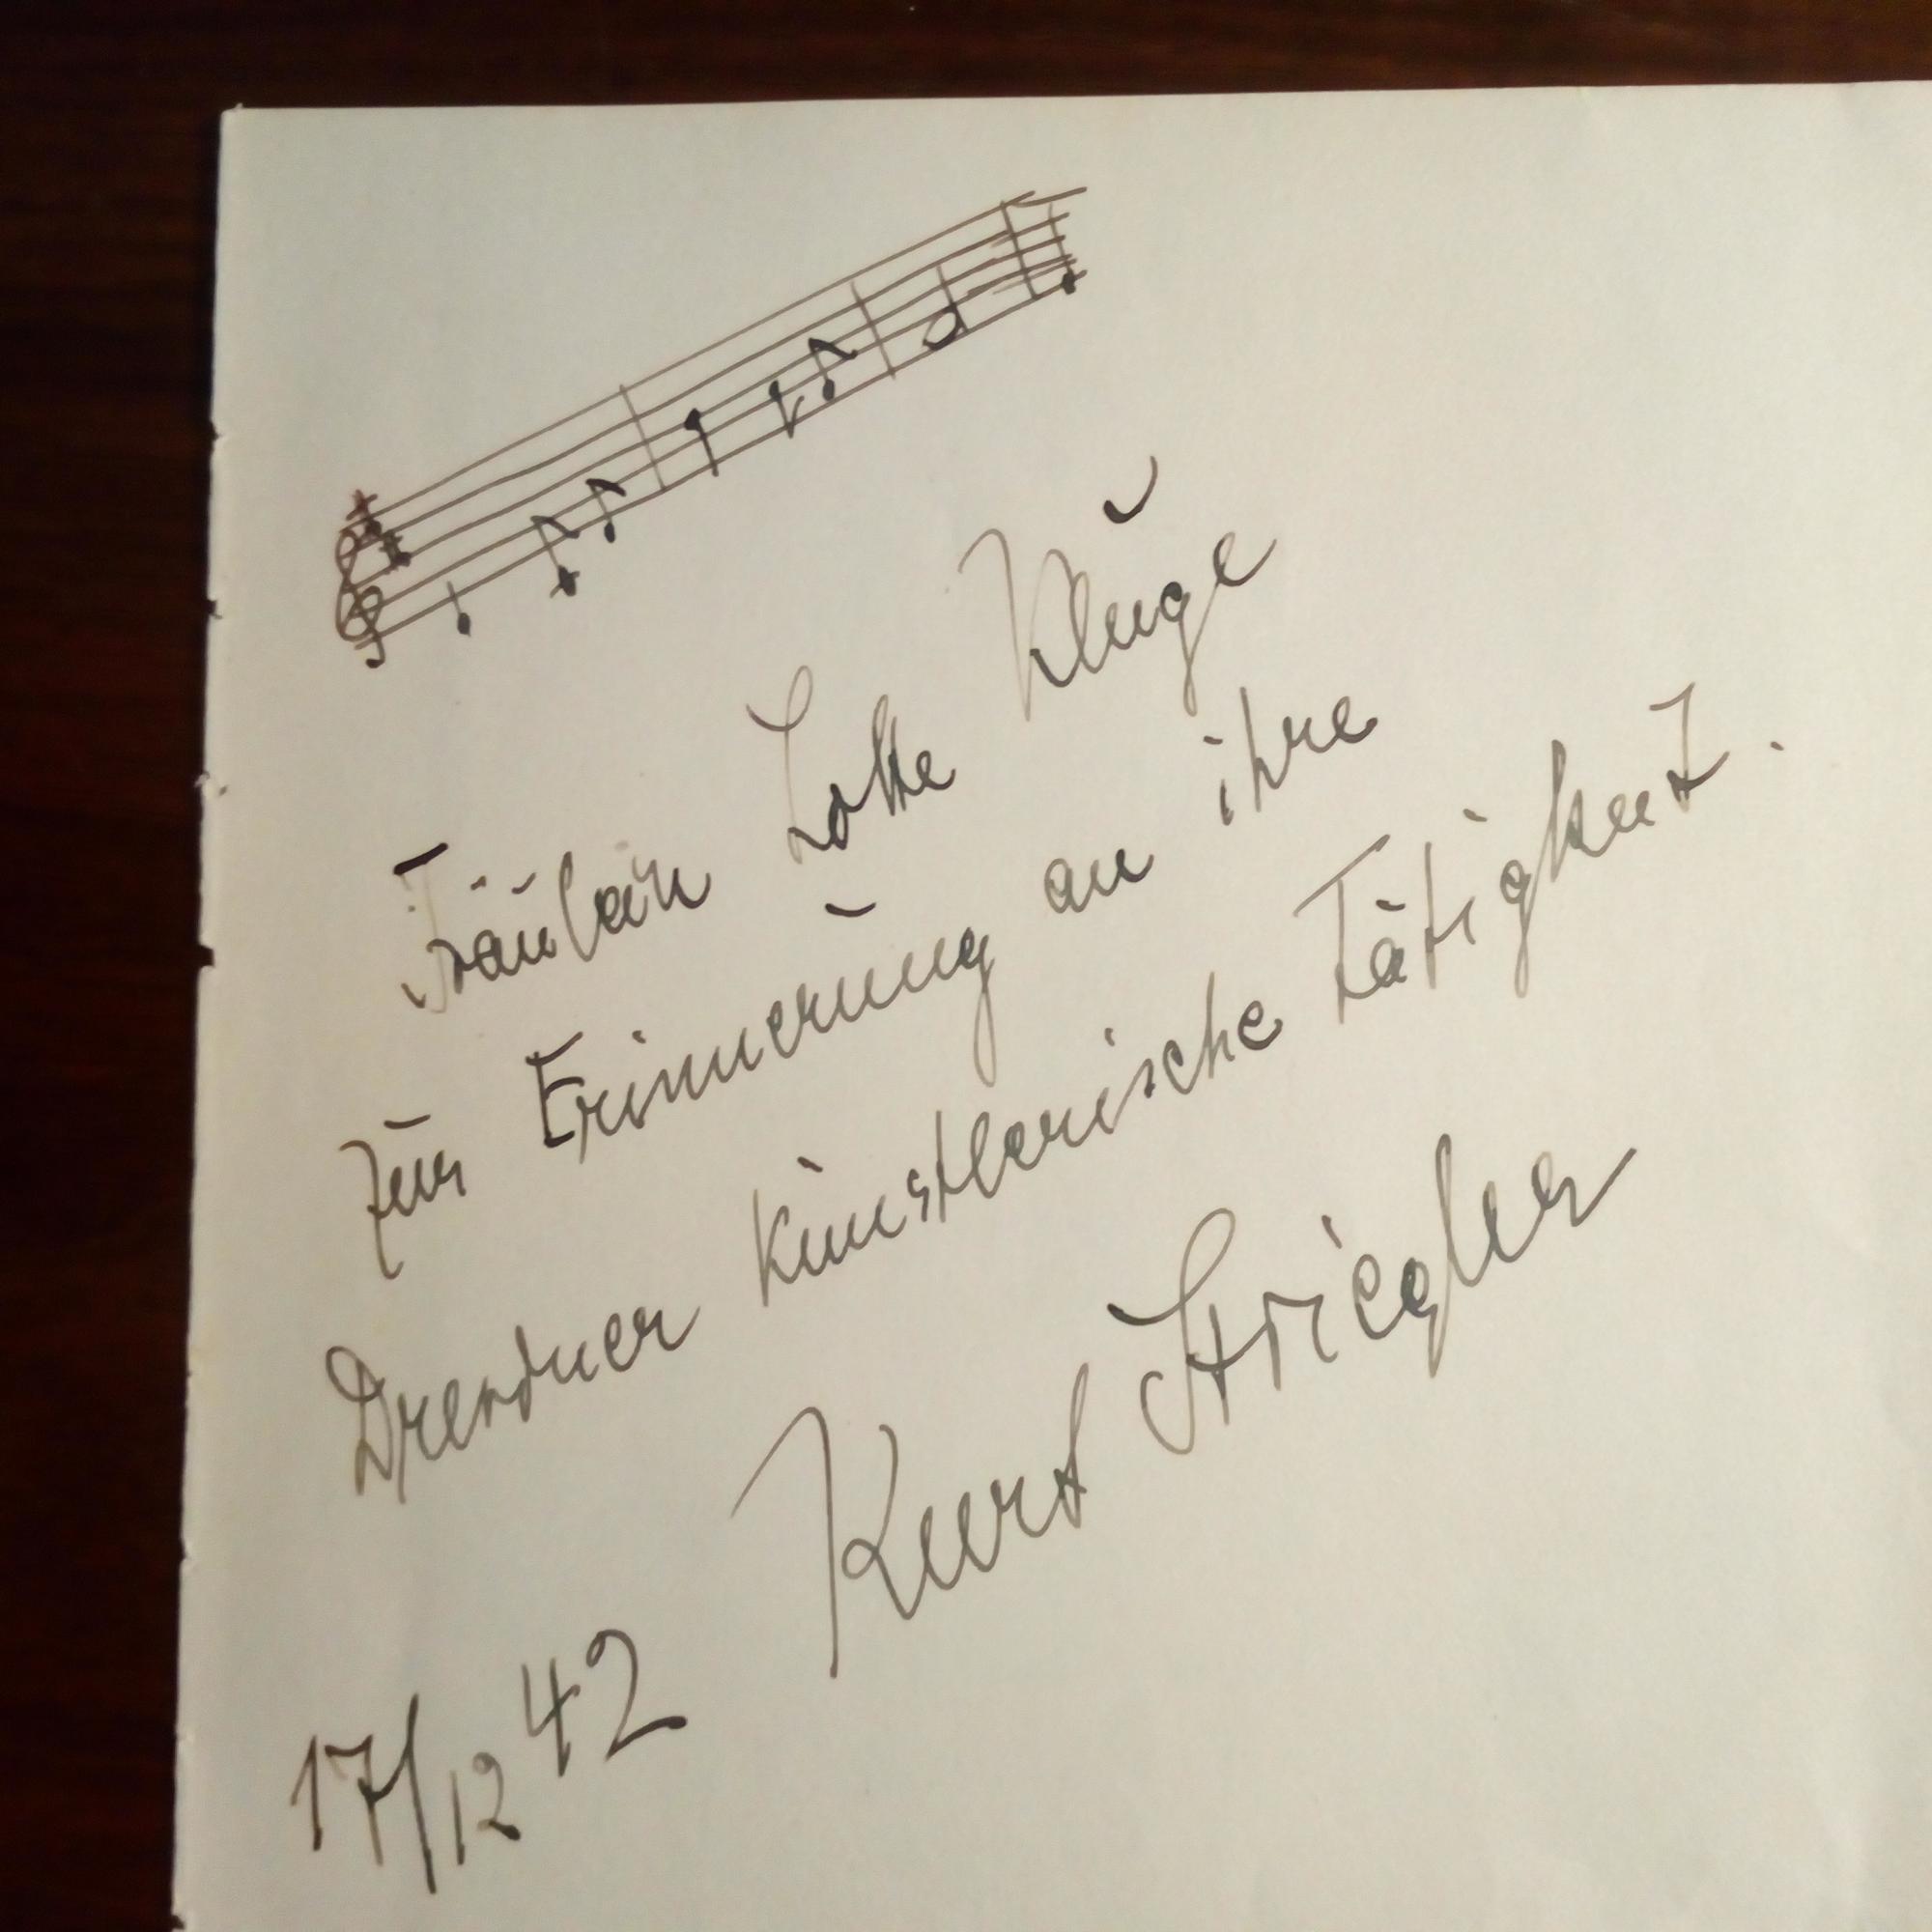 Fräulein Lotte Kluge
zur Erinnerung an ihre
Dresdner künstlerische Tätigkeit.
Kurt Striegler
17/12 42